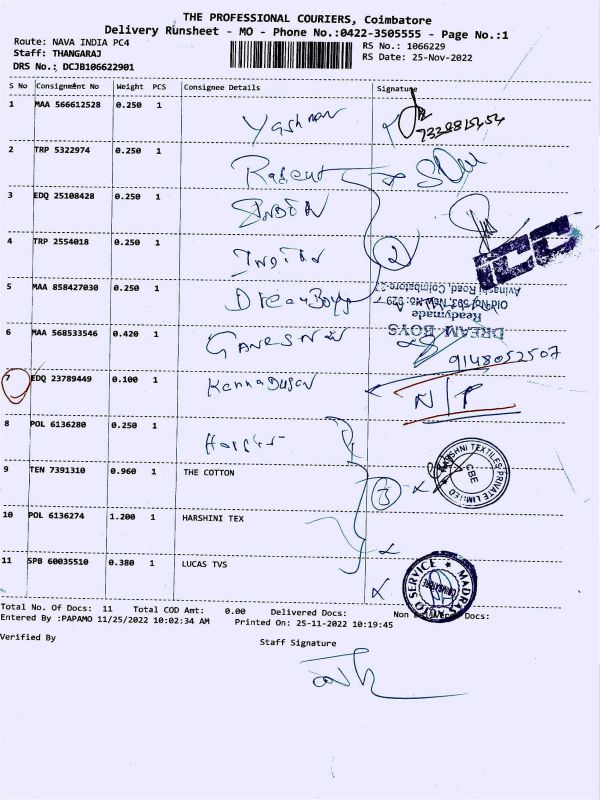 THE PROFESSIONAL COURIERS, Coimbatore
Delivery Runsheet - MO - Phone No.:0422-3505555 - Page No.:1
Route: NAVA INDIA PC4
RS No.: 1066229
Staff: THANGARAJ
RS Date: 25-Nov-2022
DRS No.: DCJB106622901
S No Consignment No Weight PCS Consignee Details Signature
1 MAA 566612528 0.250 1 Yashman
7338815454
2 TRP 5322974 0.250 1
3 EDQ 25108428 0.250 1
4 TRP 2554018 0.250 1
2
ICC
5 MAA 858427030 0.250 1 Dream Boys
DREAM BOYS
Readymade
Old No:593, New No: 929
Avinashi Road, Coimbatore-37
6 MAA 568533546 0.420 1
9148052507
7 EDQ 23789449 0.100 1
N/P
8 POL 6136280 0.250 1
9 TEN 7391310 0.960 1 THE COTTON
3
HARSHNI TEXTILES PRIVATE LIMITED
CBE
10 POL 6136274 1.200 1 HARSHINI TEX
11 SPB 60035510 0.380 1 LUCAS TVS
MADRAS AUTO SERVICE
COIMBATORE
Total No. Of Docs: 11 Total COD Amt: 0.00 Delivered Docs: Non Delivered Docs:
Entered By :PAPAMO 11/25/2022 10:02:34 AM Printed On: 25-11-2022 10:19:45
Verified By
Staff Signature